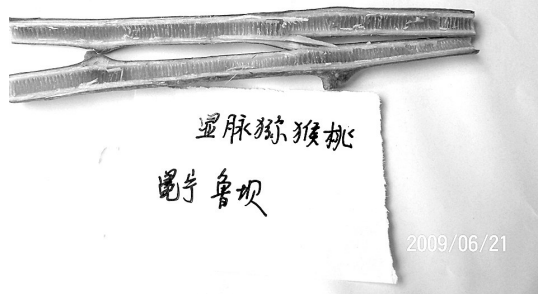 显脉猕猴桃
鲁坝
2009/06/21